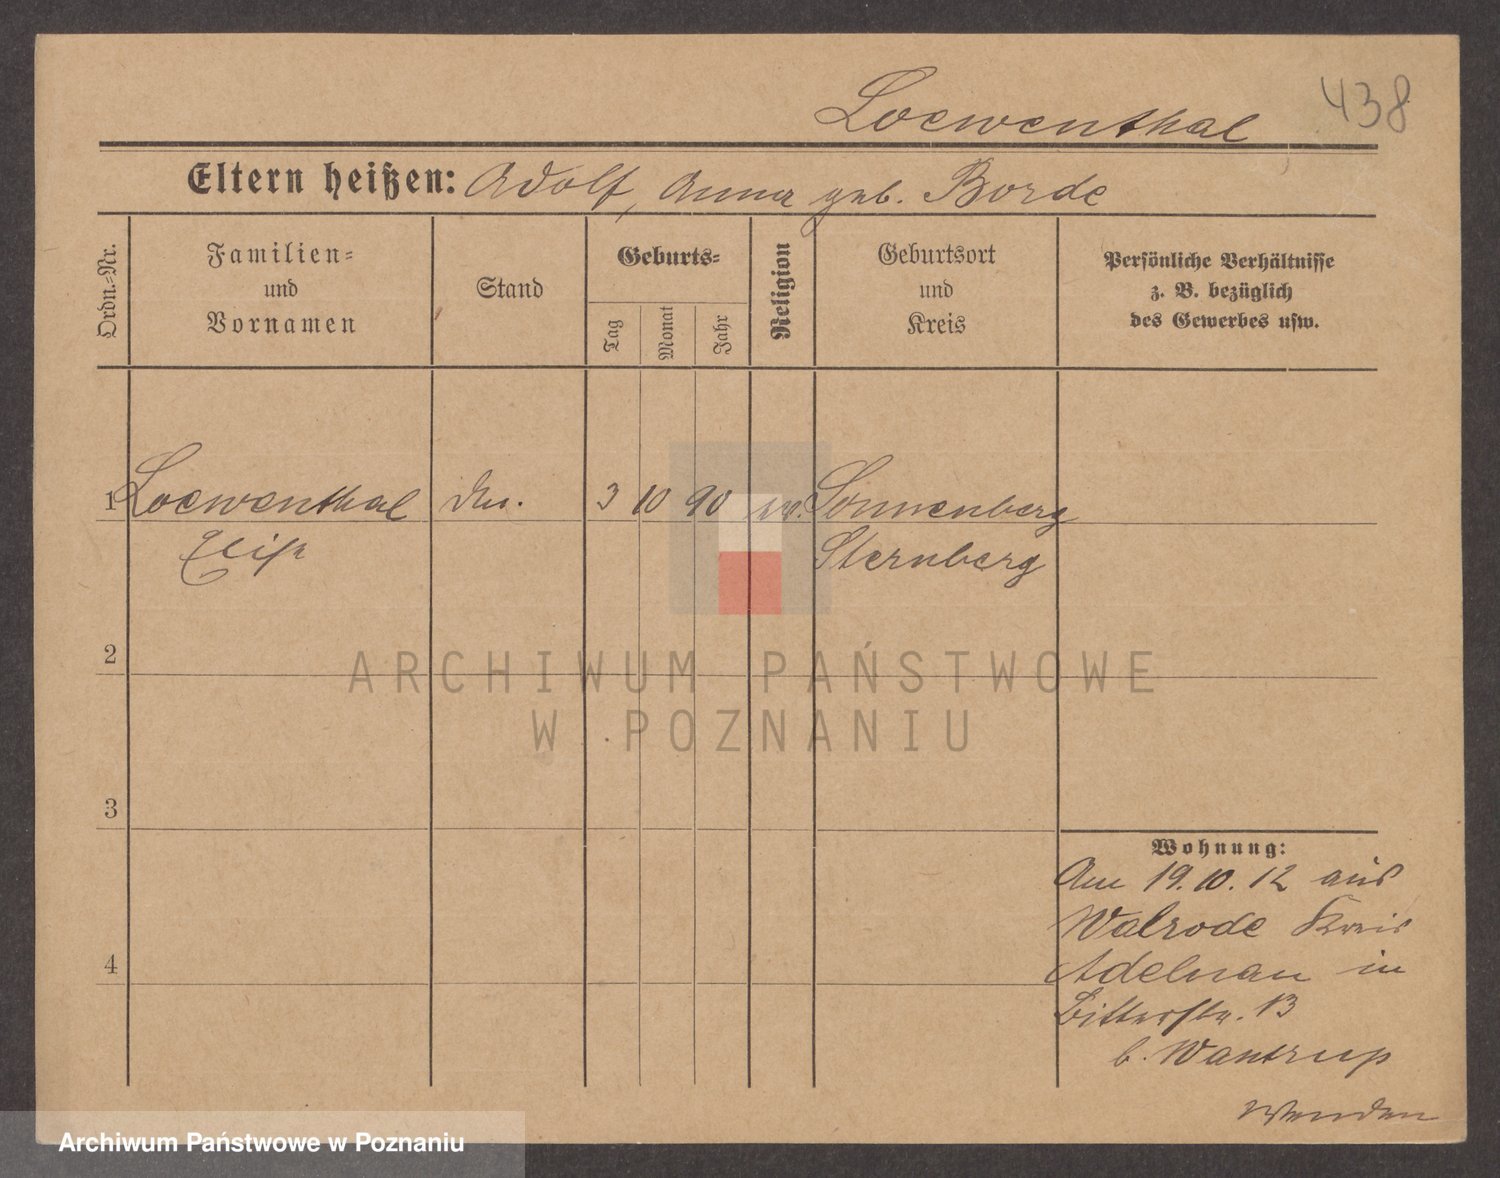 438
Loewenthal
Eltern heißen: Adolf, Anna geb. Borde
Ordn.-Nr.
Familien-
und
Vornamen
Stand
Geburts-
Tag
Monat
Jahr
Religion
Geburtsort
und
Kreis
Persönliche Verhältnisse
z. B. bezüglich
des Gewerbes usw.
1 Loewenthal 3 10 90 ev. Sonnenberg
Sternberg
2
ARCHIWUM PAŃSTWOWE
W POZNANIU
3
Wohnung:
Am 19. 10. 12 aus
Walrode Kreis
4
Adelnau in
13
b. Wantrup
Wenden
Archiwum Państwowe w Poznaniu